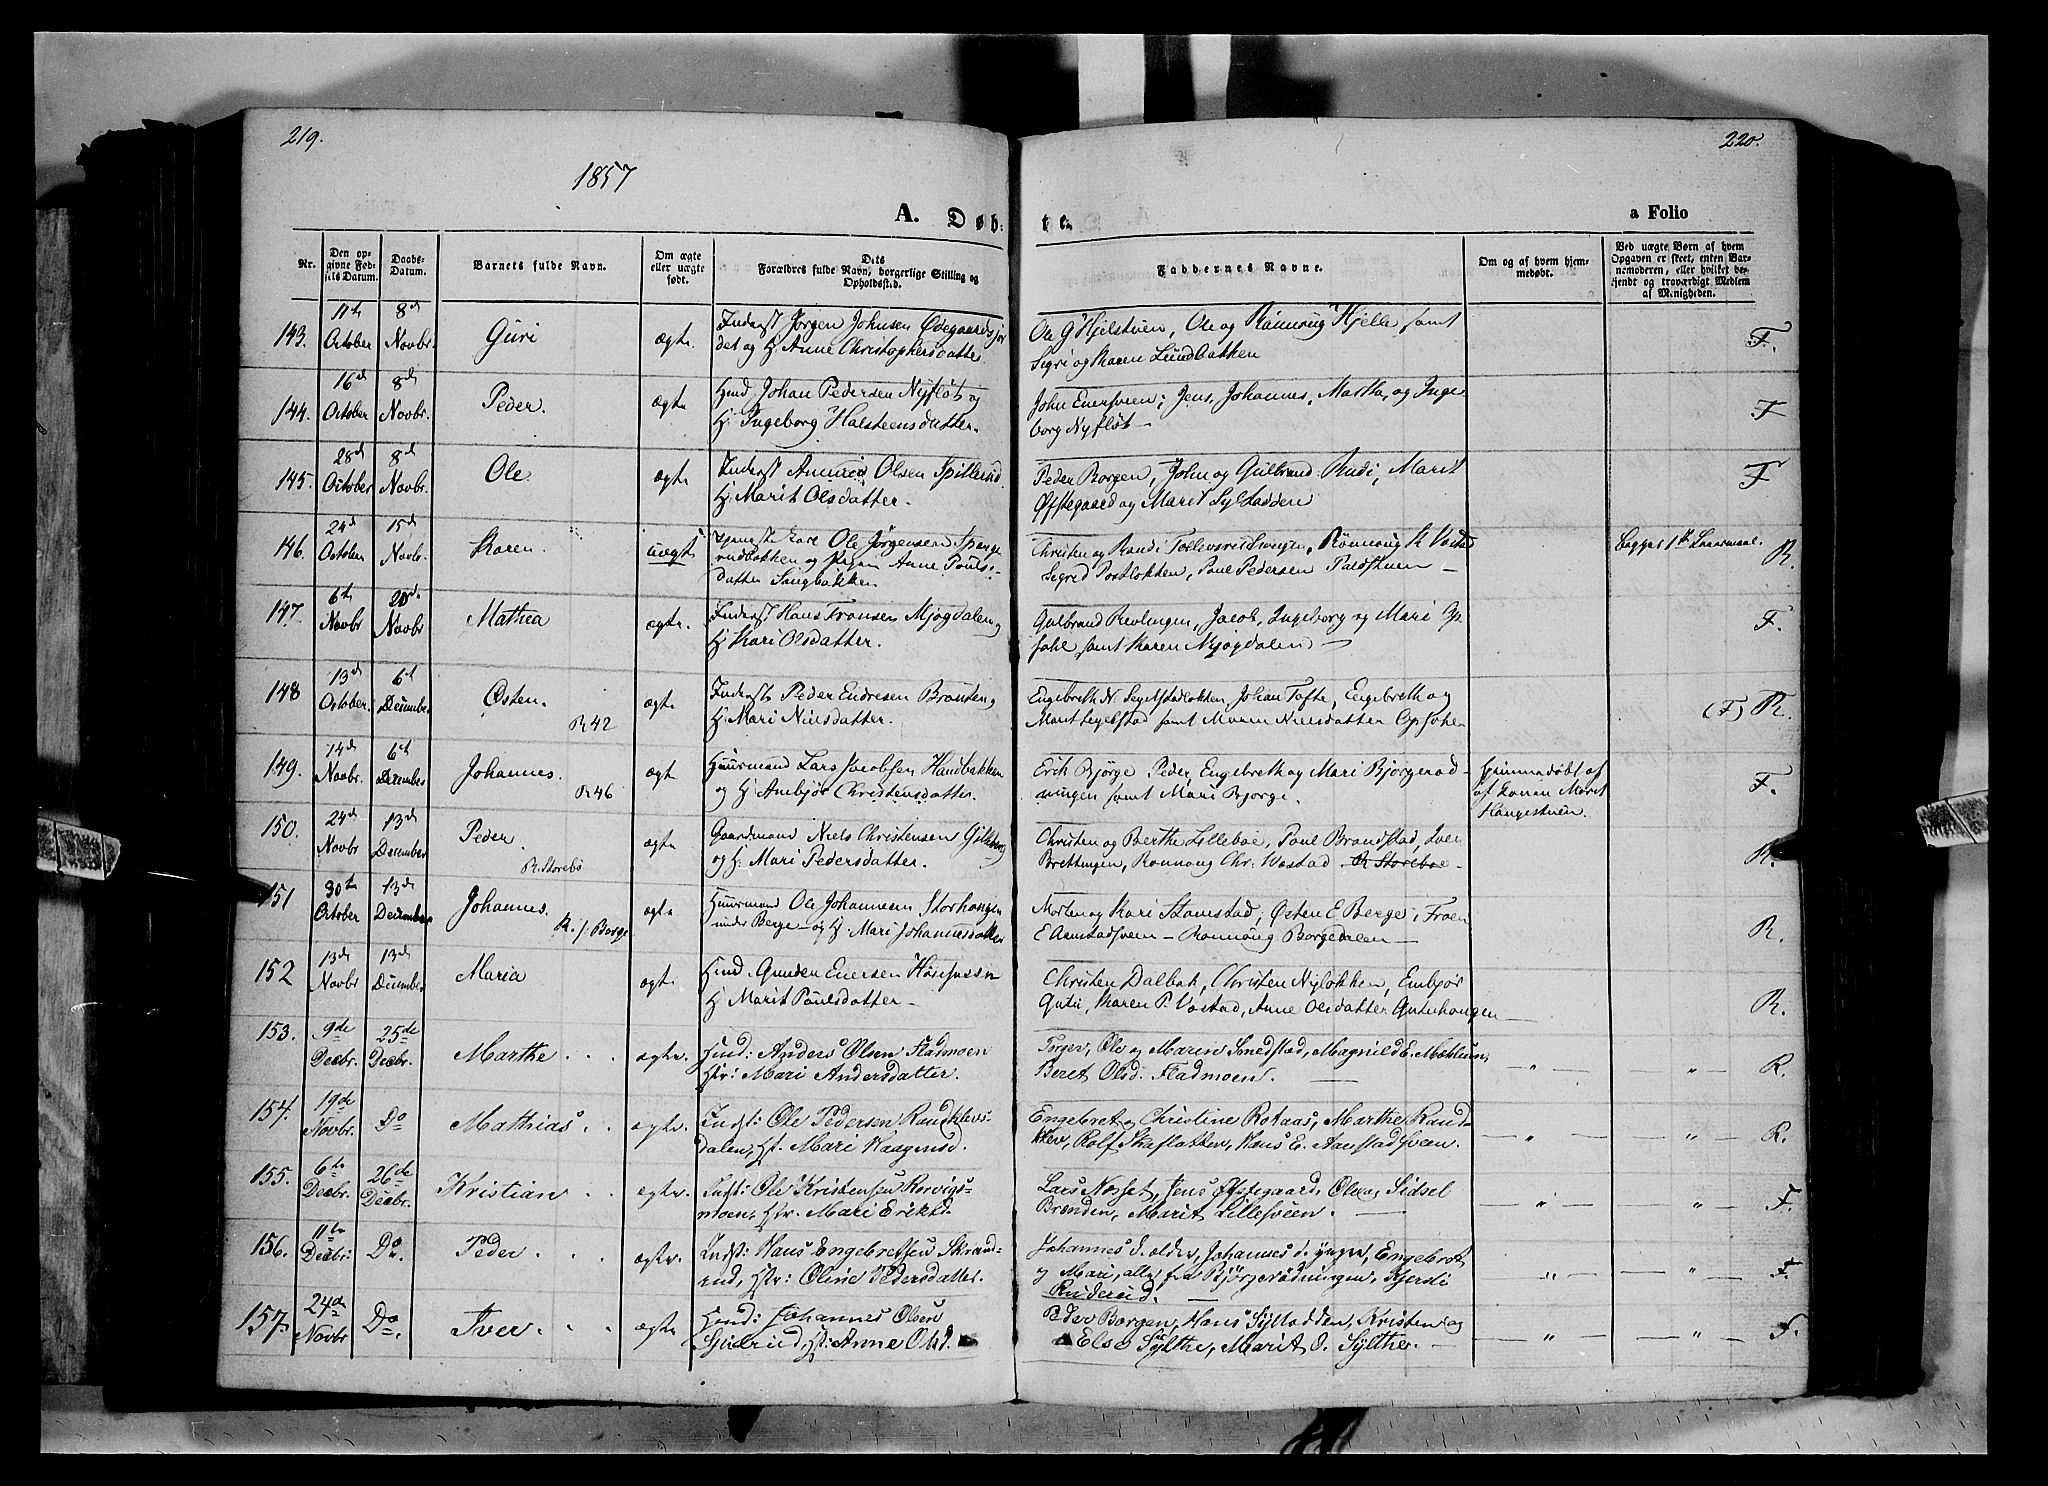 219.
220.
1857
A. Døb-
te.
a Folio
Nr.
Den op-
givne Fød-
sels Datum.
Daabs-
Datum.
Barnets fulde Navn.
Om ægte
eller uægte
født.
Dets
Forældres fulde Navn, borgerlige Stilling og
Opholdssted.
Faddernes Navne.
Om og af hvem hjem-
medøbt.
Ved uægte Børn af hvem
Opgaven er skeet, enten Bar-
nemoderen, eller hvilket be-
kjendt og troværdigt Medlem
af Menigheden.
143. 11te October 8de Novbr. Guri ægte
Inderst Jørgen Johnsen Ødegaards
det og H. Anne Christophersdatter
Ole G. Hjelstuen, Ole og Rønnoug Hjelle samt
Sigri og Karen Lundbakken
F.
144. 16de October 8de Novbr. Peder. ægte
Hmd Johan Pedersen Nyfløt og
H. Ingeborg Halsteensdatter.
John Enersveen, Jens, Johannes, Martha og Inge
borg Nyfløt
F
145. 28de October 8de Novbr. Ole ægte
Inderst Olsen Spillerud
H. Marit Olsdatter.
Peder Borgen, John og Gulbrand Rudi, Marit
Øfstegaard og Marit Sylladden
F
146. 24de October 15de Novbr. Karen uægte
Tjeneste Karl Ole Jørgensen Spange
rudbakken og Pigen Anne Pouls-
datter Sangbakken.
Christen og Randi, Rønnoug K. Vostad
Sigrid, Poul Pedersen
Begges 1ste Leiermaal.
R.
147. 6te Novbr 20de Novbr Mathea ægte.
Inderst Hans Fransen Mjøgdalen og
H. Kari Olsdatter.
Gulbrand Revlingen, Jacob, Ingeborg og Mari Op
sahl samt Karen Mjøgdalen
F.
148 13de October. 6te December Østen. R 42 ægte
Inderst Peder Endresen Brænden og
H. Mari Nielsdatter.
Engebreth N. Segelstadlokken, Johan Tofte, Engebreth og
Marit Segelstad samt Maren Nielsdatter
(F) R.
149. 14de Novbr. 6te December Johannes. R 46 ægte
Huusmand Lars Jacobsen Haudbakken
og H. Ambjør Christensdatter.
Erik Bjørge Peder, Engebreth og Mari Bjørgerød-
ningen samt Mari Bjørge.
Hjemmedøbt af
af Konen Marit
Haugestuen.
F.
150. 24de Novbr 13de December Peder. R. Storebø ægte
Gaardmand Niels Christensen
og H. Mari Pedersdatter.
Christen og Berthe Lilleboe, Poul Brandstad, Iver
Brettingen, Rønnoug Chr. Vostad R Storeboe
R.
151 30te October 13de December Johannes. R. f. Berge ægte
Huusmand Ole Johannesen Storhaugen
under Berge og H. Mari Johannesdatter
Morten og Kari Stamstad, Østen E Berge, Froen
E Aamstadsveen Rønnoug Borgedalen
R.
152 13de Novbr 13de December Maria ægte
Hmd. Gunder Enersen
H. Marit Poulsdatter
Christen Dalbak, Christen Nylokken, Embjør
Gutu, Karen P. Vostad, Anne Olsdatter Gutuhaugen
R.
153. 9de Decbr. 25de Decbr. Marthe ægte.
Hmd: Anders Olsen Fladmoen
Hstr: Mari Andersdatter.
Torger, Ole og Marin Snedstad, Magnild E. Mæhlum,
Beret Olsd. Fladmoen.
R.
154. 19de Novbr. Do Mathias ægte.
Indst: Ole Pedersen Randklevs-
dalen, Hst. Mari Haagensd.
Engebret og Christine Rotaas, Marthe Rand-
klev, Rolf Skaflokken, Hans E. Aamstadsveen.
R.
155. 6te Decbr. 26de Decbr. Kristian ægte.
Indst: Ole Kristensen Rorvigs-
moen, Hstr. Mari Eriksd.
Lars Nosset, Jens Øfstegaard, Ole og Sidsel
Brænden, Marit Lillesveen.
F.
156. 11te Decbr: Do Peder ægte.
Indst: Hans Engebretsen Skrand-
rud, Hstr: Oline Pedersdatter.
Johannes d. ældre, Johannes d. yngre, Engebret
og Mari, alle fra Bjørgerødningen, Kjersti
Ruderud.
F.
157. 24de Novbr Do. Iver ægte
Hmd: Johannes Olsen
Hst: Anne Olsd.
Peder Borgen, Hans Sylladden, Kristen og
Else Sylthe, Marit O. Sylthe.
F.